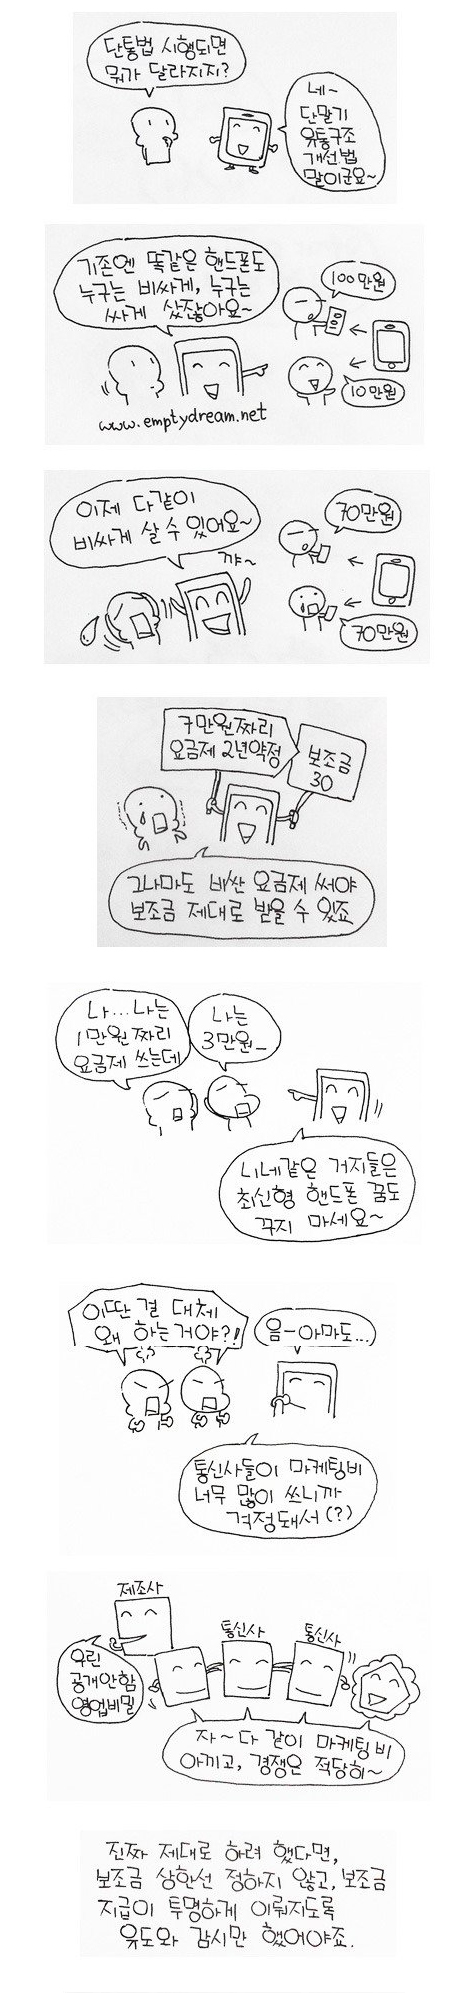 단통법 시행되면
뭐가 달라지지?
네~
단말기
유통구조
개선법
말이군요~
기존엔 똑같은 핸드폰도
누구는 비싸게, 누구는
싸게 샀잖아요~
100만원
10만원
www.emptydream.net
이제 다같이
비싸게 살 수 있어요~
꺄~
70만원
70만원
7만원짜리
요금제 2년약정
보조금
30
그나마도 비싼 요금제 써야
보조금 제대로 받을 수 있죠
나...나는
1만원짜리
요금제 쓰는데
나는
3만원_
니네같은 거지들은
최신형 핸드폰 꿈도
꾸지 마세요~
이딴 걸 대체
왜 하는거야?!
음-아마도...
통신사들이 마케팅비
너무 많이 쓰니까
걱정돼서(?)
제조사
통신사
통신사
우린
공개안함
영업비밀
자~다 같이 마케팅비
아끼고, 경쟁은 적당히~
진짜 제대로 하려 했다면,
보조금 상한선 정하지 않고, 보조금
지급이 투명하게 이뤄지도록
유도와 감시만 했어야죠.